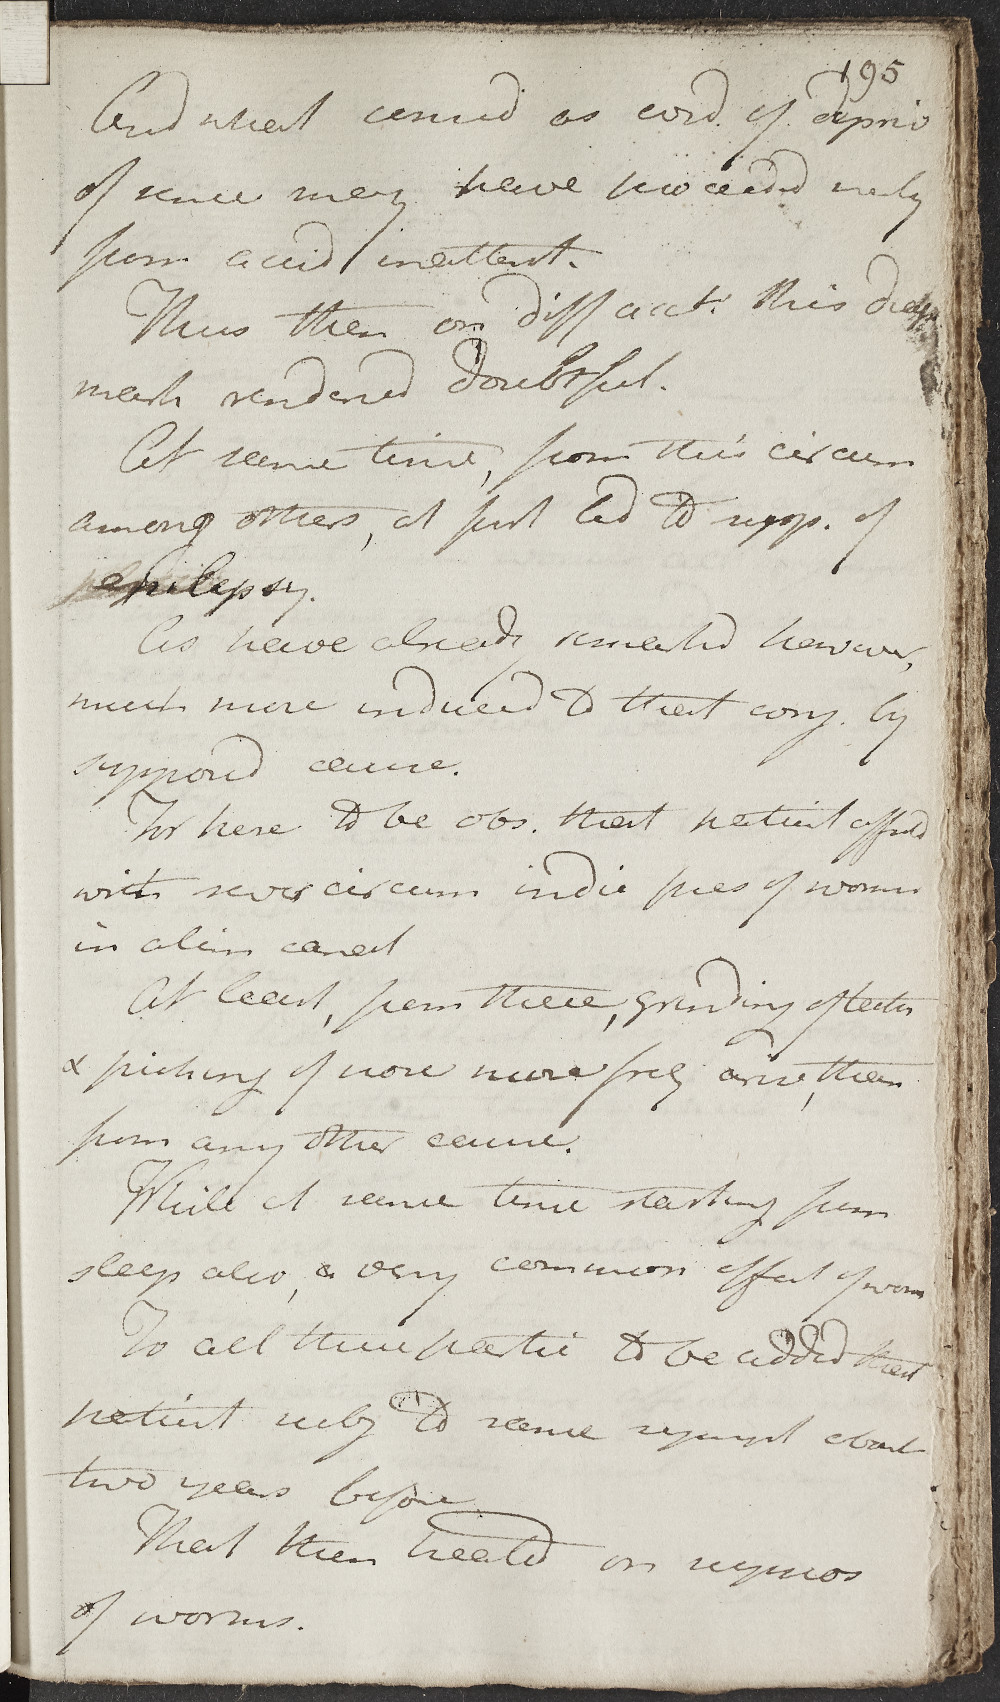 195
And what cenured as cord. of depriv
of sense may have proceeded merely
from accid inattent.
Thus then on diff acct. this diagn
mark rendered doubtful.
At same time, from this circum
among others, at first led to supp. of
epilepsy.
As have already remarked however,
much more induced to that conj. by
supposed cause.
For here to be obs. that patient affected
with sever circum indic pres of worms
in alim canal
At least, from these, grinding of teeth
& picking of nose more freq arise, than
from any other cause.
While at same time starting from
sleep also, a very common effect of worms
To all these partic to be added that
patient subj to same sympt about
two years before
That then treated on suppos
of worms.